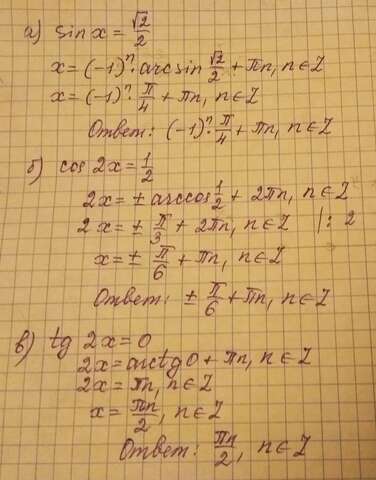 а) sin x = √2/2
x = (-1)ⁿ · arcsin √2/2 + πn, n ∈ Z
x = (-1)ⁿ · π/4 + πn, n ∈ Z
Ответ: (-1)ⁿ · π/4 + πn, n ∈ Z
б) cos 2x = 1/2
2x = ± arccos 1/2 + 2πn, n ∈ Z
2x = ± π/3 + 2πn, n ∈ Z |: 2
x = ± π/6 + πn, n ∈ Z
Ответ: ± π/6 + πn, n ∈ Z
в) tg 2x = 0
2x = arctg 0 + πn, n ∈ Z
2x = πn, n ∈ Z
x = πn/2, n ∈ Z
Ответ: πn/2, n ∈ Z